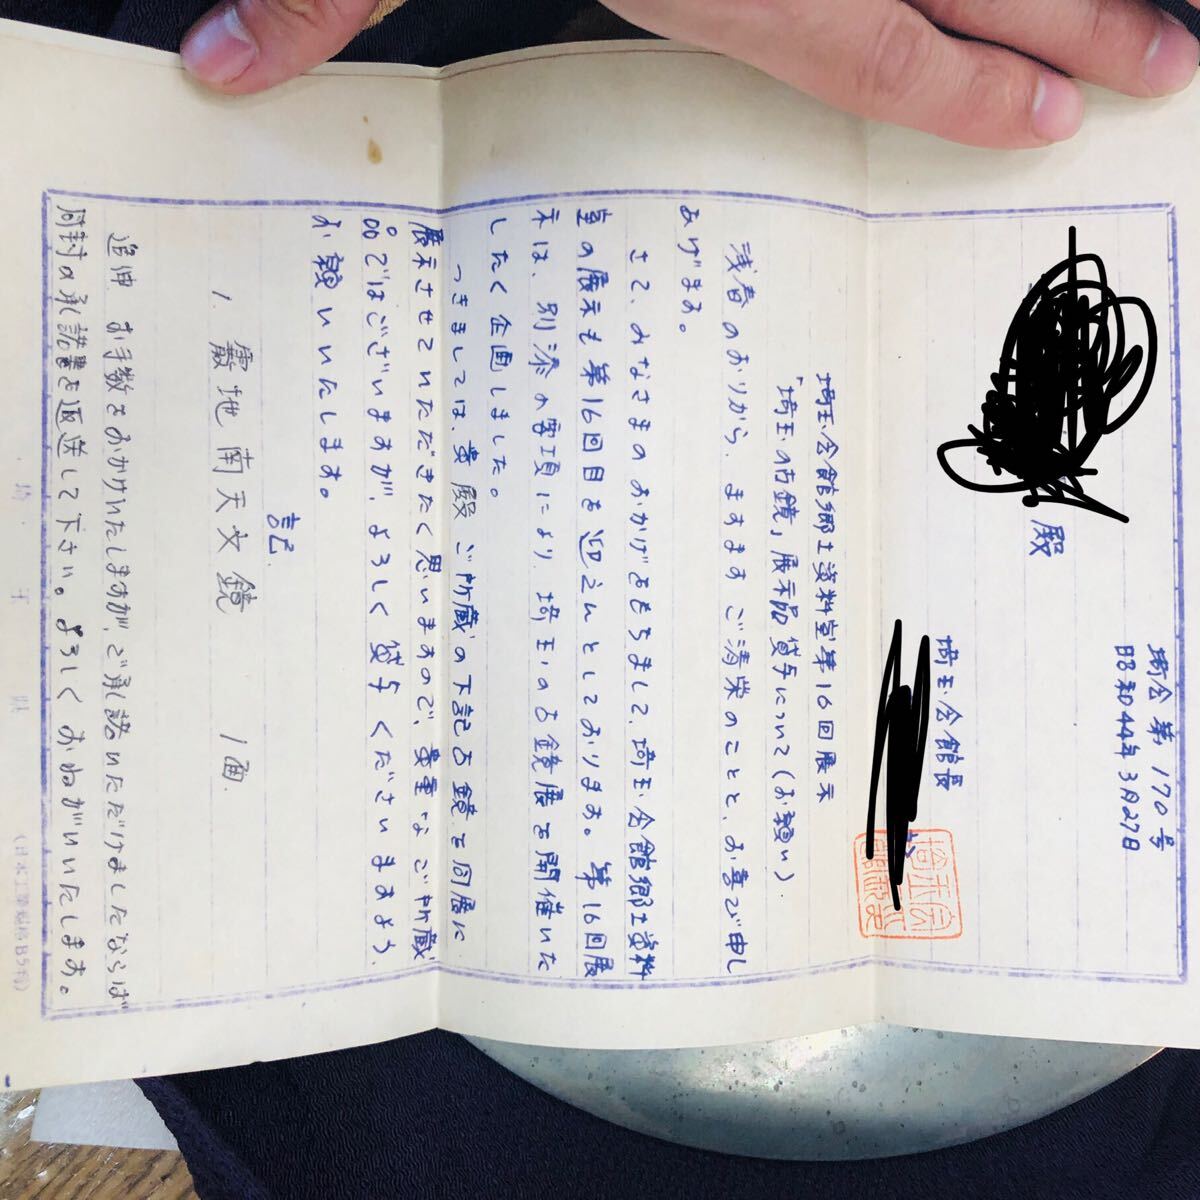 埼会第170号
昭和44年3月27日
殿
埼玉会館長
埼玉会館郷土資料室第16回展示
「埼玉の古鏡」展示品貸与について(お願い)
浅春のおりから、ますますご清栄のことと、お喜び申し
あげます。
さて、みなさまのおかげをもちまして、埼玉会館郷土資料
室の展示も第16回目を迎えんとしております。第16回展
示は、別添の要項により、埼玉の古鏡展を開催いた
したく企画しました。
つきましては、貴殿ご所蔵の下記古鏡を同展に
展示させていただきたく思いますので、貴重なご所蔵
品ではございますが、よろしく貸与くださいますよう、
お願いいたします。
記
1. 地南天文鏡 1面.
追伸 お手数をおかけいたしますが、ご承諾いただけましたならば
同封の承諾書を返送して下さい。よろしくおねがいいたします。
埼玉県
(日本工業規格B5倍)